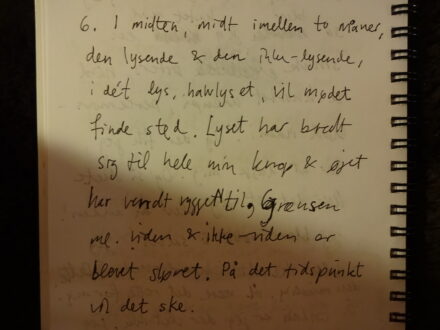 6. I midten, midt imellem to måner,
den lysende & den ikke-lysende,
i dét lys, halvlyset, vil mødet
finde sted. Lyset har bredt
sig til hele min krop & øjet
har vendt rygget til, Grænsen
me. viden & ikke-viden er
blevet sløret. På det tidspunkt
vil det ske.